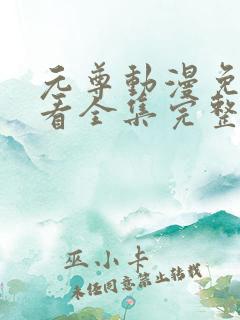 元尊動漫免
看全集完整
巫小卡
未任同意禁止转载